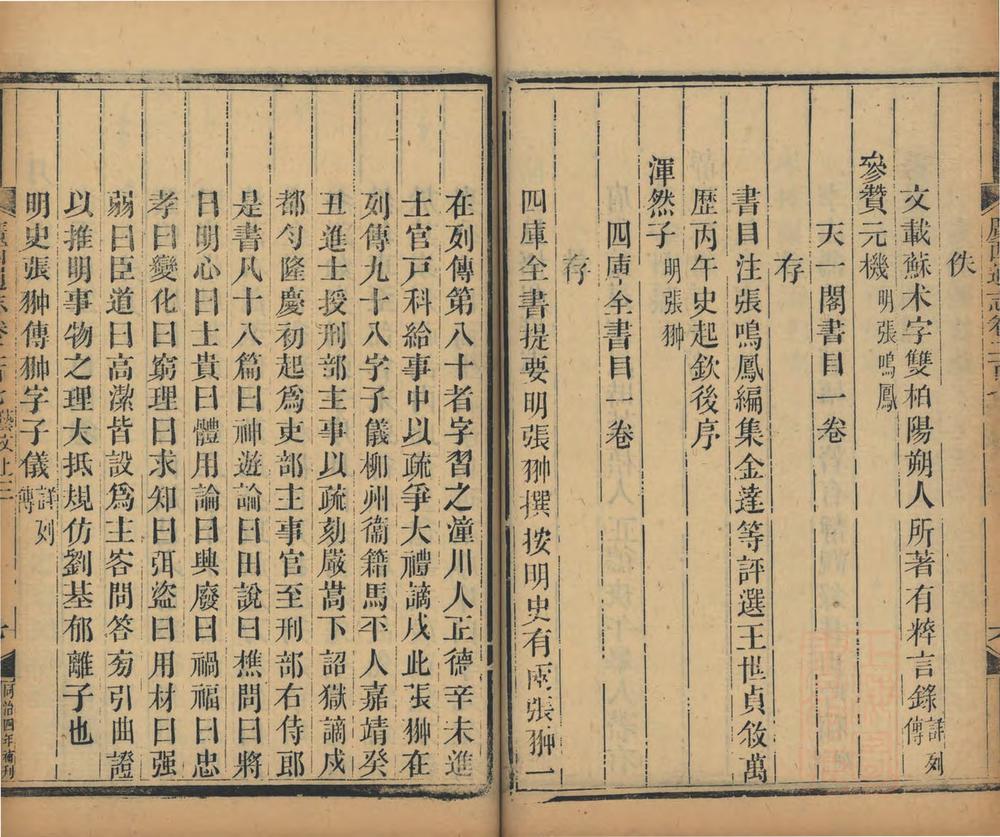 佚
文載蘇术字雙柏陽朔人所著有粹言錄詳列傳
參贊元機明張鳴鳳
天一閣書目一卷
存
書目注張鳴鳳編集金達等評選王世貞敘萬
歷丙午史起欽後序
渾然子明張翀
四庫全書目一卷
存
四庫全書提要明張翀撰按明史有兩張翀一
在列傳第八十者字習之潼川人正德辛未進
士官戸科給事中以疏爭大禮謫戍此張翀在
列傳九十八字子儀柳州衞籍馬平人嘉靖癸
丑進士授刑部主事以疏劾嚴嵩下詔獄謫戍
都勻隆慶初起爲吏部主事官至刑部右侍郎
是書凡十八篇曰神遊論曰田說曰樵問曰將
曰明心曰士貴曰體用論曰興廢曰禍福曰忠
孝曰變化曰窮理曰求知曰弭盜曰用材曰强
弱曰臣道曰高潔皆設爲主客問答旁引曲證
以推明事物之理大抵規仿劉基郁離子也
明史張翀傳翀字子儀詳列傳
同治四年補刊